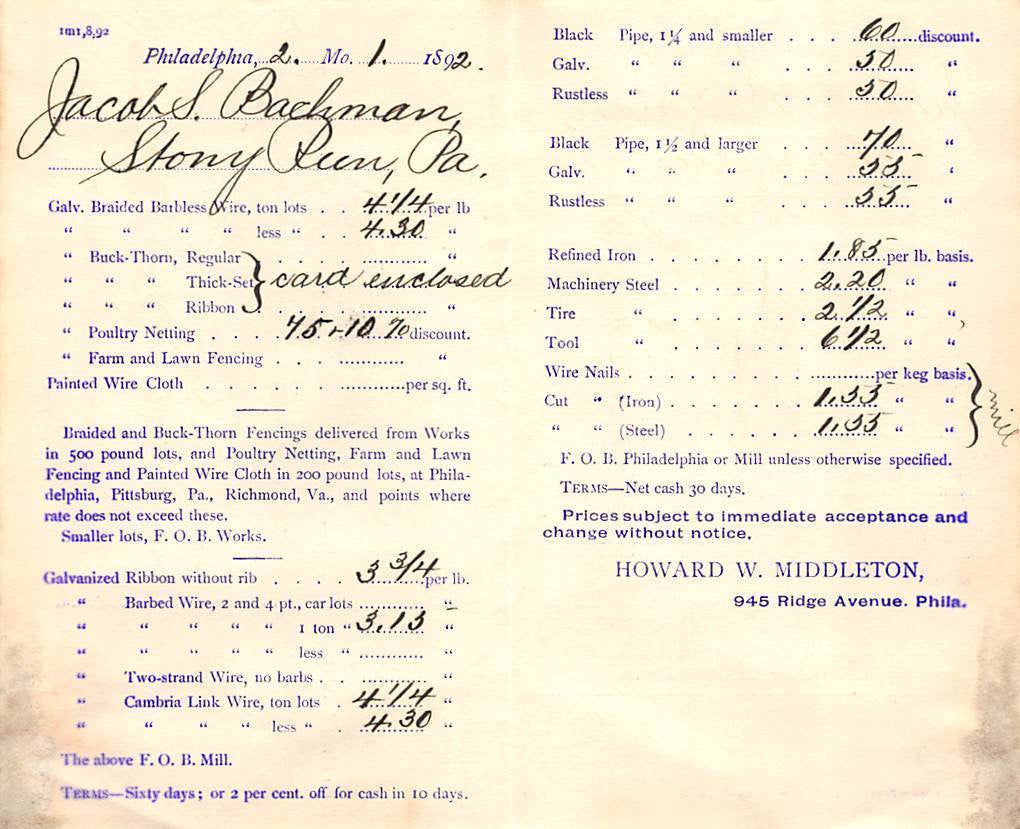 1m1,8,92
Philadelphia, 2. Mo. 1. 1892.
Jacob S. Bachman,
Stony Run, Pa.
Galv. Braided Barbless Wire, ton lots . . 4 1/4 per lb
“ “ “ “ less “ . . 4.30 “
“ Buck-Thorn, Regular . . . . . . “
“ “ “ Thick-Set } card enclosed
“ “ “ Ribbon . . . . . . “
“ Poultry Netting . . . . 75 + 10 % discount.
“ Farm and Lawn Fencing . . . . “
Painted Wire Cloth . . . . . . per sq. ft.
Braided and Buck-Thorn Fencings delivered from Works
in 500 pound lots, and Poultry Netting, Farm and Lawn
Fencing and Painted Wire Cloth in 200 pound lots, at Phila-
delphia, Pittsburg, Pa., Richmond, Va., and points where
rate does not exceed these.
Smaller lots, F. O. B. Works.
Galvanized Ribbon without rib . . . . 3 3/4 per lb.
“ Barbed Wire, 2 and 4 pt., car lots ............ “
“ “ “ “ “ 1 ton “ 3.13 “
“ “ “ “ “ less “ ............ “
“ Two-strand Wire, no barbs . . ............ “
“ Cambria Link Wire, ton lots . 4 1/4 “
“ “ “ “ less “ . 4.30 “
The above F. O. B. Mill.
TERMS—Sixty days; or 2 per cent. off for cash in 10 days.
Black Pipe, 1¼ and smaller . . . 60 discount.
Galv. “ “ “ . . . 50 “
Rustless “ “ “ . . . 50 “
Black Pipe, 1½ and larger . . . 70 “
Galv. “ “ “ . . . 55 “
Rustless “ “ “ . . . 55 “
Refined Iron . . . . . . . 1.85 per lb. basis.
Machinery Steel . . . . . . 2.20 “ “
Tire “ . . . . . . 2 1/2 “ “
Tool “ . . . . . . 6 1/2 “ “
Wire Nails . . . . . . . . ............ per keg basis.
Cut “ (Iron) . . . . . . 1.55 “ “ } mill
“ “ (Steel) . . . . . . 1.55 “ “
F. O. B. Philadelphia or Mill unless otherwise specified.
TERMS—Net cash 30 days.
Prices subject to immediate acceptance and
change without notice.
HOWARD W. MIDDLETON,
945 Ridge Avenue. Phila.